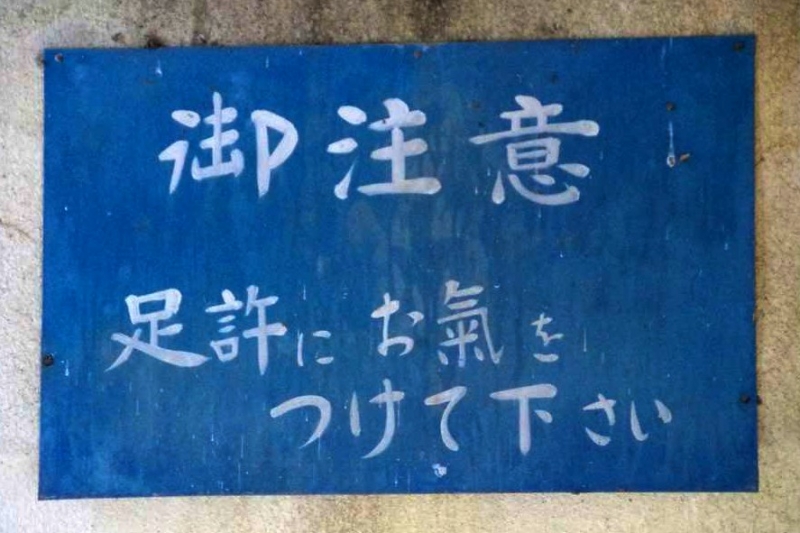 御注意
足許にお氣を
つけて下さい